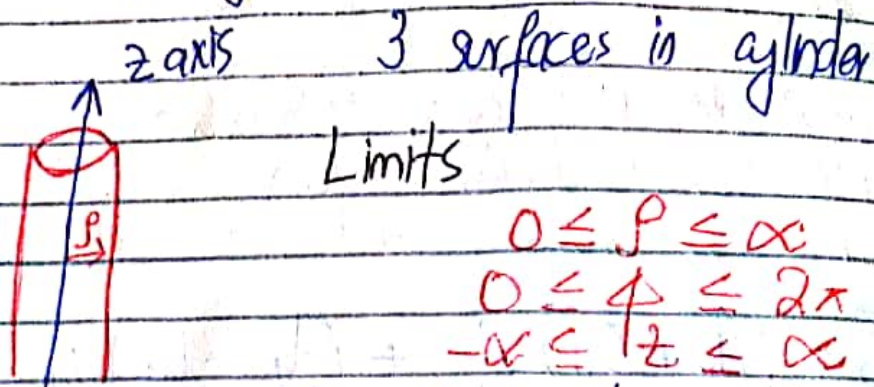 z axis 3 surfaces in cylinder
Limits
ρ
0 ≤ ρ ≤ ∝
0 ≤ ϕ ≤ 2π
-∝ ≤ z ≤ ∝